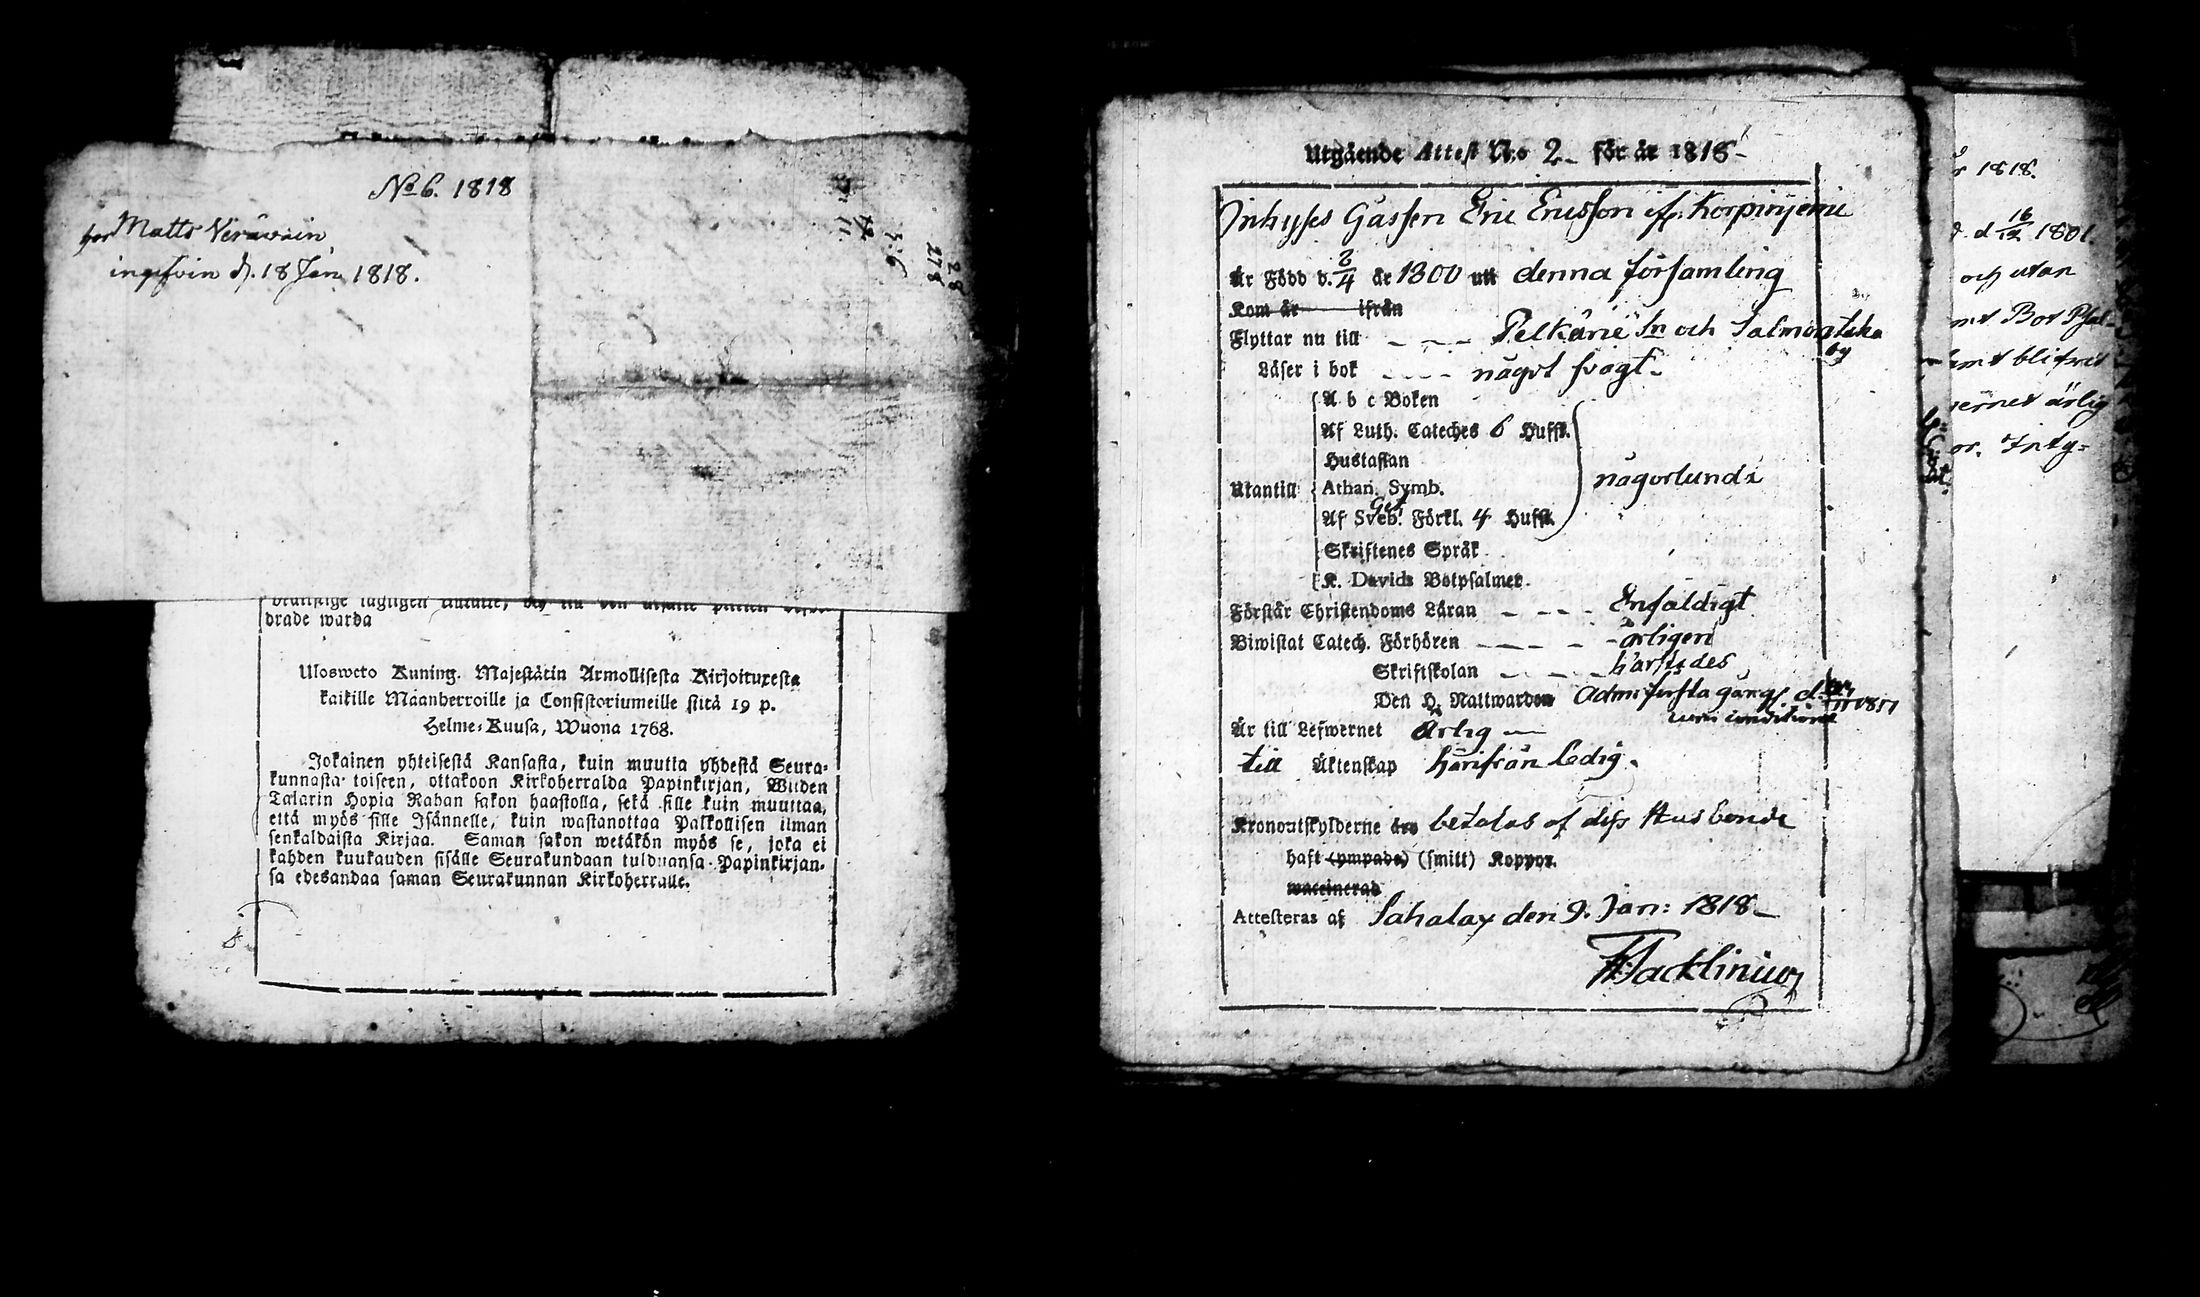 No 6. 1818
för Matts
d. 18 Jan 1818.
drade warda
Ulosweto Kuning. Majestätin Armollisesta Kirjoituxesta
kaikille Maanherroille ja Consistoriumeille siitä 19 p.
Helme-Kuusa, Wuona 1768.
Jokainen yhteisestä Kansasta, kuin muutta yhdestä Seura-
kunnasta toiseen, ottakoon Kirkoherralda Papinkirjan, Wiiden
Talarin Hopia Rahan sakon haastolla, sekä sille kuin muuttaa,
että myös sille Isännelle, kuin wastanottaa Palkollisen ilman
senkaldaista Kirjaa. Saman sakon wetäkön myös se, joka ei
kahden kuukauden sisälle Seurakundaan tulduansa Papinkirjan-
sa edesandaa saman Seurakunnan Kirkoherralle.
Utgående Attest N:o 2 för år 1818
Inhyses Gåssen Eric Ericsson ifr.
Är Född d. år 1800 utt denna församling
Kom år ifrån
Flyttar nu till Pelkäne Sn och Salmentaka
by
Läser i bok något svagt
A b c Boken
Af Luth. Cateches 6 Hufst.
Hustaflan
Utantill Athan. Symb. någorlunda
Af Sveb. Förkl. 4 Hufst.
Skriftenes Språk
K. Davids Botpsalmer.
Förstår Christendoms Läran Enfaldigt
Biwistat Catech. Förhören årligen
Skriftskolan härstädes
Den H. Nattwarden Adm. första gång
Är till Lefwernet Ärlig
till Äktenskap härifrån ledig.
Kronoutskylderne äro betalas af dess Husbonde
haft (ympade) (smitt) Koppor.
waccinerad
Attesteras af Sahalax den 9. Jan: 1818
år 1818.
d 16/12 1801.
och utan
Bot Psal-
blifwit
ärlig
Inty-